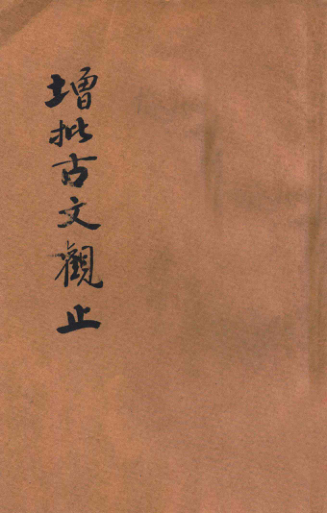 增批古文觀止